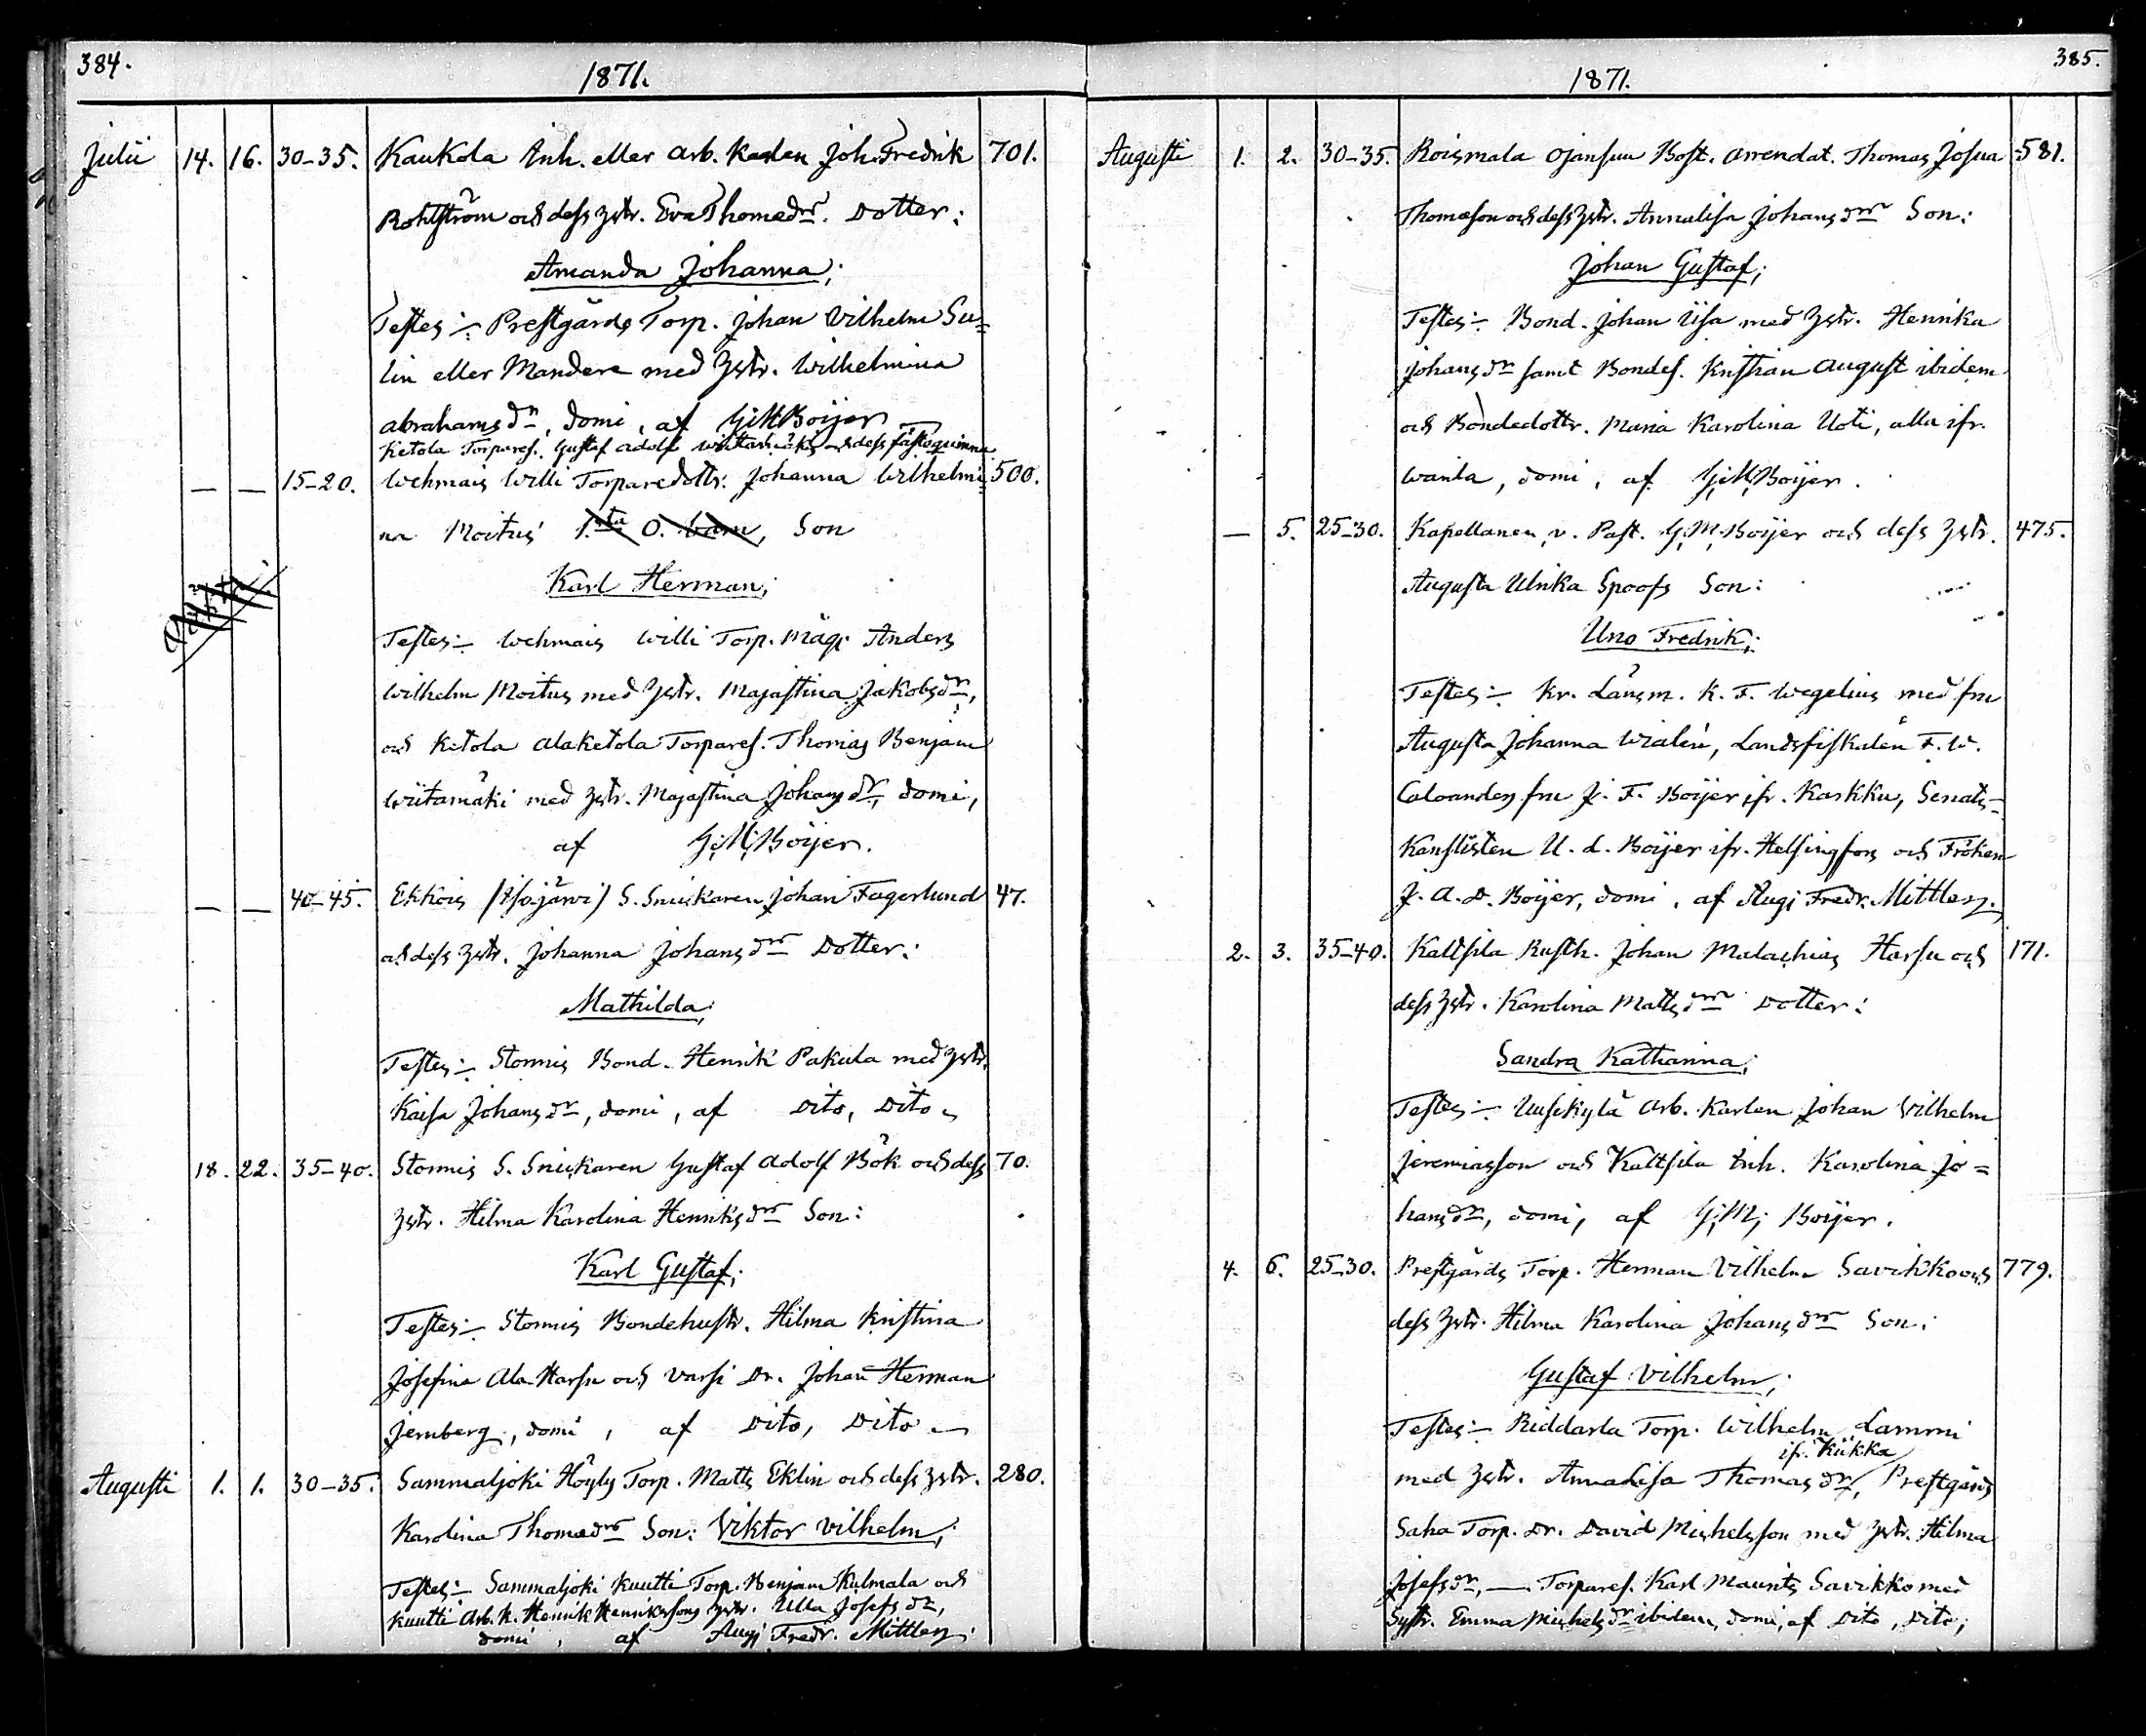 384.
1871.
Julii 14. 16. 30-35. Kaukola Inh. eller Arb. Karlen Joh. Fredrik 701.
Rohlström och dess hstr. Eva Thomædr. Dotter:
Amanda Johanna;
Testes:- Prestgårds Torp. Johan Vilhelm Su=
lin eller Mandere med hstr. Wilhelmina
Abrahamsdr, domi, af G.M. Boijer
Ketola Torpares. Gustaf Adolf Wiitamäkis och dess fästeqvinna
— — 15-20. Wehmais Willi Torparedottr. Johanna Wilhelmi= 500.
na Moitus' 1.sta O. barn, Son
Karl Herman;
Testes:- Wehmais Willi Torp. Måg: Anders
Wilhelm Moitus med hstr. Majastina Jakobsdr,
och Ketola Alaketola Torpares. Thomas Benjam
Wiitamäki med hstr. Majastina Johansdr, domi,
af G.M. Boijer.
— — 40-45. Ekkois /Isojärvi/ S. Snickaren Johan Fagerlund 47.
och dess hstr. Johanna Johansdr Dotter:
Mathilda;
Testes:- Stormis Bond. Henrik Pakula med hstr.
Kaisa Johansdr, domi, af Dito, Dito
18. 22. 35-40. Stormis S. Snickaren Gustaf Adolf Bök och dess 70.
hstr. Hilma Karolina Henriksdr Son:
Karl Gustaf;
Testes:- Stormis Bondehustr. Hilma Kristina
Josefina Ala-Harsu och Varsi Dr. Johan Herman
Jernberg, domi, af Dito, Dito
Augusti 1. 1. 30-35. Sammaljoki Höyly Torp. Matts Eklin och dess hstr. 280.
Karolina Thomædr Son: Viktor Vilhelm;
Testes:- Sammaljoki Kuutti Torp. Benjam Kulmala och
Kuutti Arb. k. Henrik Henrikssons hstr. Ulla Josefsdr,
domi, af Aug. Fredr. Mittler;
385.
1871.
Augusti 1. 2. 30-35. Roismala Ojansuu Bost. Arrendat. Thomas Josua 581.
Thomasson och dess hstr. Annalisa Johansdr Son:
Johan Gustaf;
Testes:- Bond. Johan Uusa med hstr. Henrika
Johansdr samt Bondes. Kristian August ibidem
och Bondedottr. Maria Karolina Uoti, alla ifr.
Wanla, domi, af G.M. Boijer.
— 5. 25-30. Kapellanen, v. Past. G.M. Boijer och dess hstr. 475.
Augusta Ulrika Spoofs Son:
Uno Fredrik;
Testes:- Kr. Länsm. K. F. Wegelius med fru
Augusta Johanna Wialén, Landsfiskalen F. W.
Caloanders fru J. F. Boijer ifr. Karkku, Senats=
Kanslisten U. L. Boijer ifr. Helsingfors och Fröken
J. A. D. Boijer, domi, af Aug. Fredr. Mittler.
2. 3. 35-40. Kaltsila Rusth. Johan Malachias Harsu och 171.
dess hstr. Karolina Mattsdr Dotter:
Sandra Katharina;
Testes:- Uusikylä Arb. Karlen Johan Vilhelm
Jeremiasson och Kaltsila Inh. Karolina Jo=
hansdr, domi, af G.M. Boijer.
4. 6. 25-30. Prestgårds Torp. Herman Vilhelm Savikko och 779.
dess hstr. Hilma Karolina Johansdr Son:
Gustaf Vilhelm;
Testes:- Riddarla Torp. Wilhelm Lammi
ifr. Kiikka
med hstr. Annalisa Thomasdr, Prestgårds
Saha Torp. Dr. David Michelsson med hstr. Hilma
Josefsdr, — Torpares. Karl Maurits Savikko med
Systr. Emma Michelsdr ibidem, domi, af Dito, Dito;